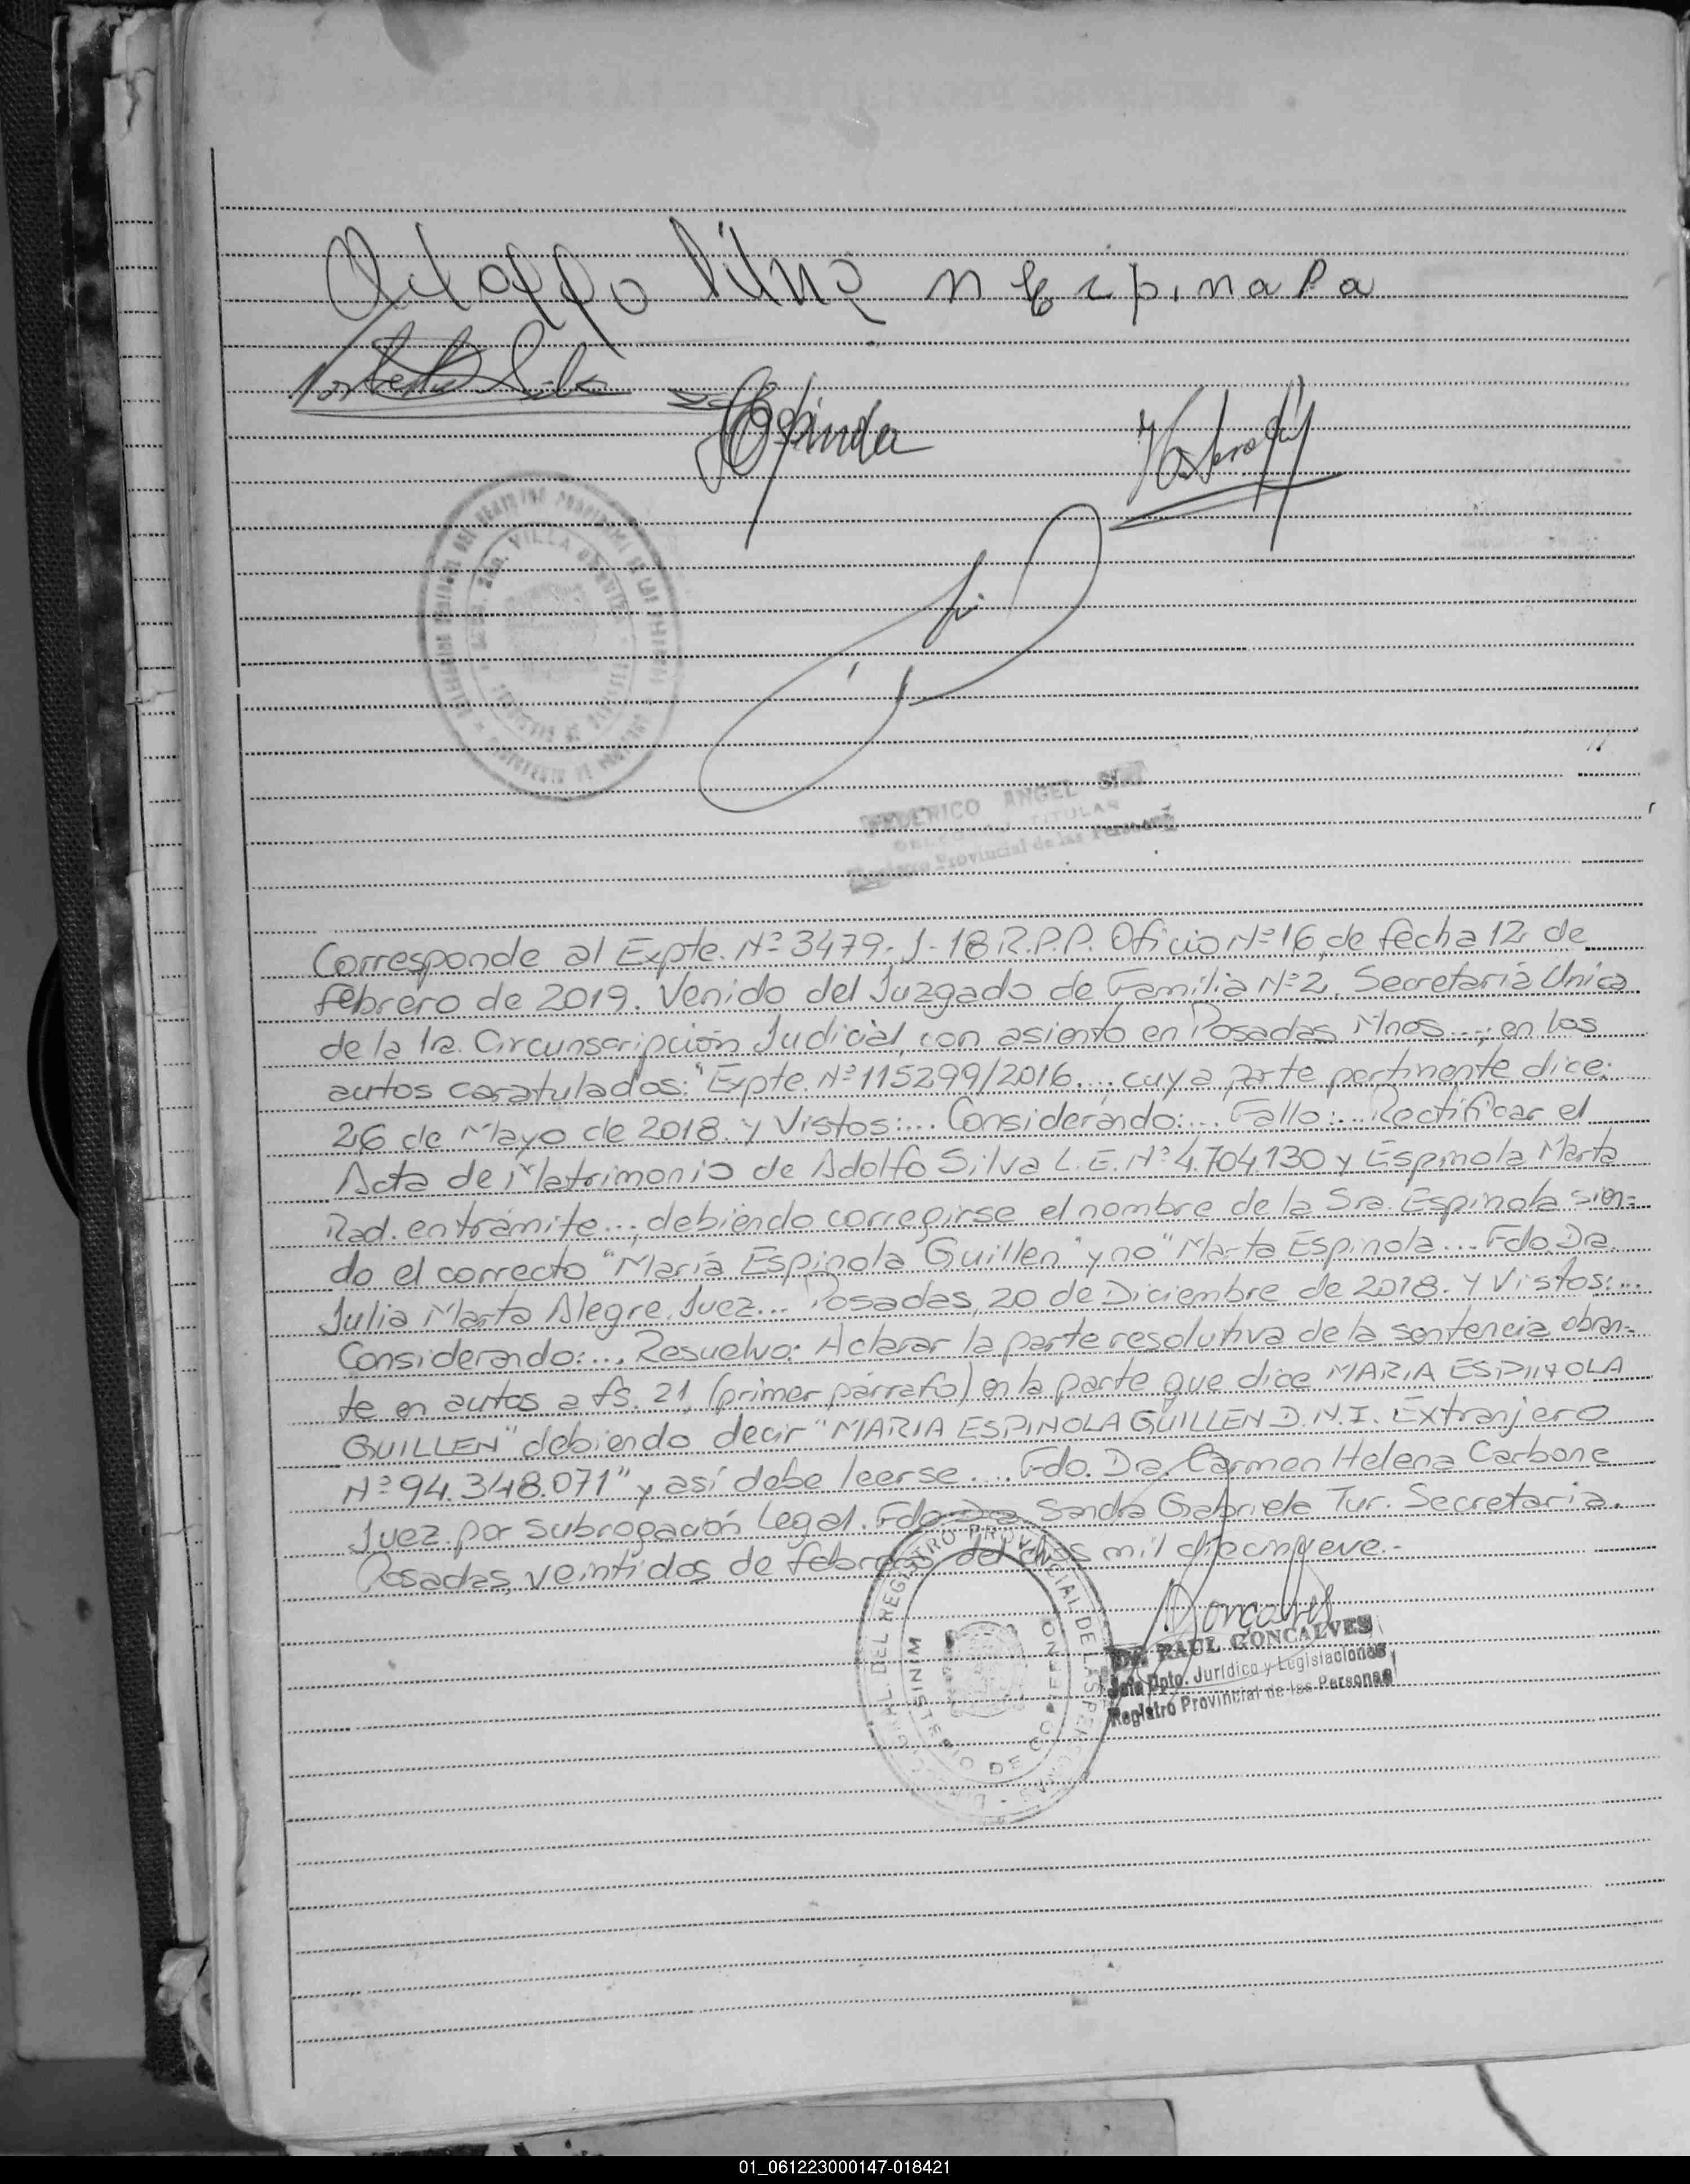 Adolfo Silva M Espinola
Norberto Silva
Espinola
FEDERICO ANGEL
DELEGADO TITULAR
Registro Provincial de las Personas
VILLA
Corresponde al Expte. Nº 3479-J-18 R.P.P. Oficio Nº 16, de fecha 12 de
febrero de 2019. Venido del Juzgado de Familia Nº 2, Secretaría Unica
de la 1ra. Circunscripción Judicial, con asiento en Posadas, Mnes...; en los
autos caratulados: "Expte. Nº 115299/2016...; cuya parte pertinente dice:
26 de Mayo de 2018. y Vistos:... Considerando:... Fallo:... Rectificar el
Acta de Matrimonio de Adolfo Silva L.E. Nº 4.704.130 y Espinola Marta
Rad. en trámite...; debiendo corregirse el nombre de la Sra. Espinola sien=
do el correcto "María Espinola Guillen" y no "Marta Espinola... Fdo. Dra.
Julia Marta Alegre. Juez... Posadas, 20 de Diciembre de 2018. Y Vistos:...
Considerando:... Resuelvo: Aclarar la parte resolutiva de la sentencia obran=
te en autos a fs. 21, (primer párrafo) en la parte que dice MARIA ESPINOLA
GUILLEN" debiendo decir "MARIA ESPINOLA GUILLEN D.N.I. Extranjero
Nº 94.348.071" y así debe leerse.... Fdo. Dra. Carmen Helena Carbone
Juez por subrogación Legal. Fdo. Dra. Sandra Gabriela Tur. Secretaria.
Posadas, veintidos de febrero del dos mil diecinueve.-
DEL REGISTRO PROVINCIAL DE LAS PERSONAS
Goncalves
Dr. RAUL GONCALVES
Jefe Dpto. Jurídico y Legislaciones
Registro Provincial de las Personas
01_061223000147-018421